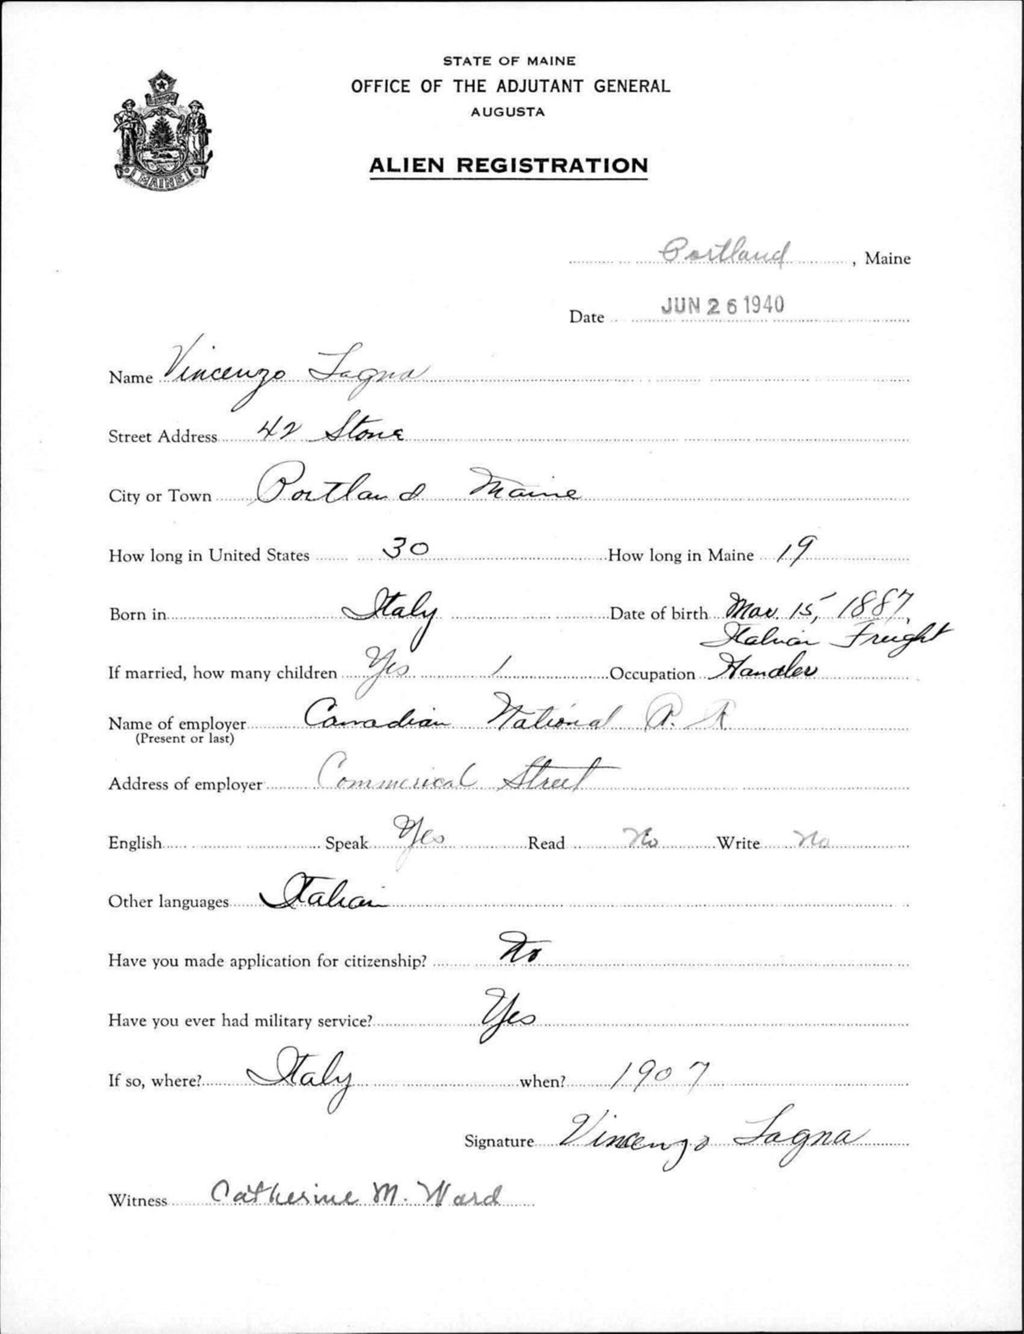 STATE OF MAINE
OFFICE OF THE ADJUTANT GENERAL
AUGUSTA
ALIEN REGISTRATION
MAINE
Portland, Maine
Date JUN 26 1940
Name Vincenzo
Street Address 42 Stone
City or Town Portland Maine
How long in United States 30 How long in Maine 19
Born in Italy Date of birth Mar. 15, 1887
Italian Freight
If married, how many children Yes 1 Occupation Handler
Name of employer Canadian National R. R
(Present or last)
Address of employer Commerical Street
English Speak Yes Read No Write No
Other languages Italian
Have you made application for citizenship? No
Have you ever had military service? Yes
If so, where? Italy when? 1907
Signature Vincenzo
Witness Catherine M. Ward